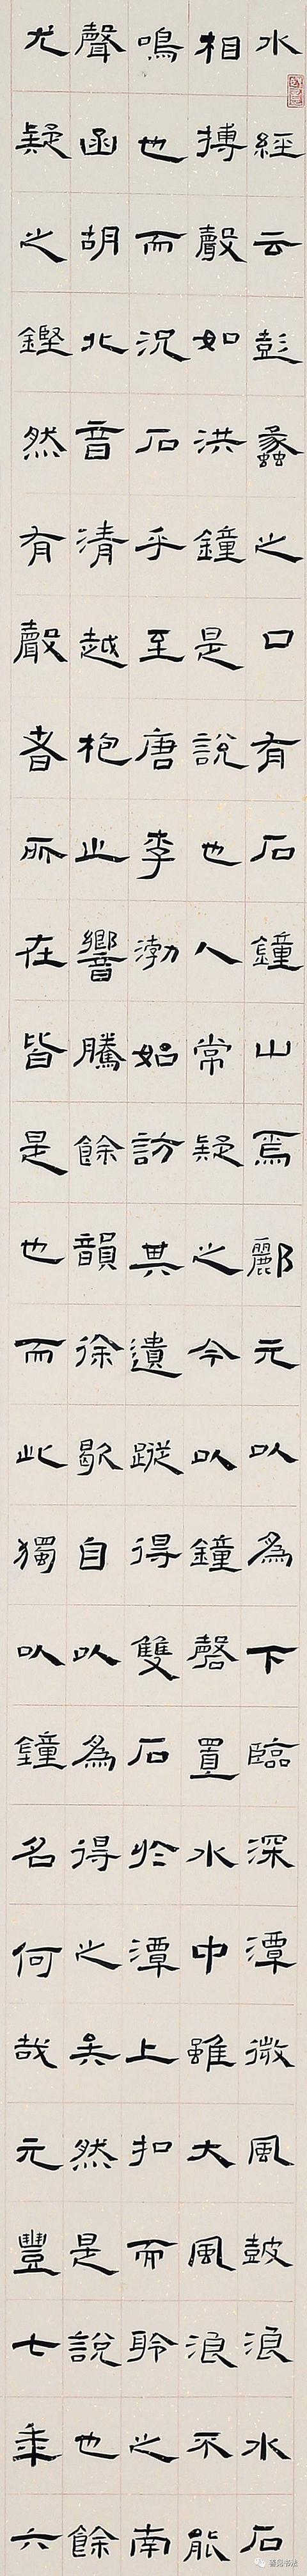 水經云彭蠡之口有石鐘山焉酈元以為下臨深潭微風鼓浪水石
相搏聲如洪鐘是說也人常疑之今以鐘磬置水中雖大風浪不能
鳴也而況石乎至唐李渤始訪其遺蹤得雙石於潭上扣而聆之南
聲函胡北音清越枹止響騰餘韻徐歇自以為得之矣然是說也餘
尤疑之鏗然有聲者所在皆是也而此獨以鐘名何哉元豐七年六